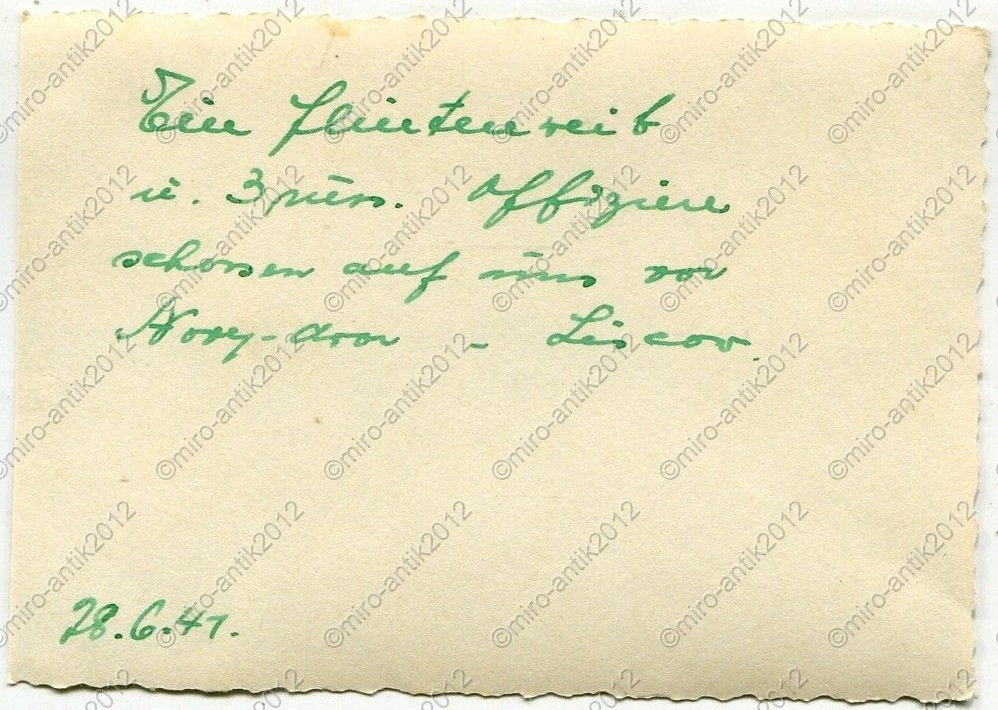 Ein Flintenweib
u. 3 russ. Offiziere
schossen auf uns vor
Novy-dvor - Liscov.
28.6.41.
©miro-antik2012